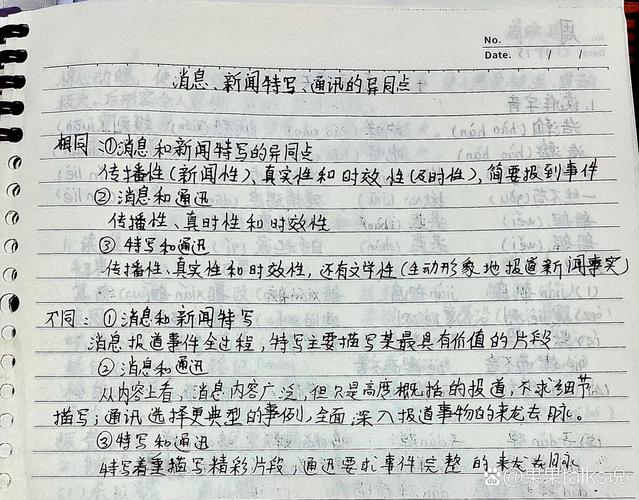 No.
Date. / /
消息、新闻特写、通讯的异同点
相同:①消息和新闻特写的异同点
传播性(新闻性)、真实性和时效性(及时性),简要报到事件
②消息和通迅
传播性、真时性和时效性
③特写和通迅
传播性、真实性和时效性,还有文学性(生动形象地报道新闻事实)
不同:①消息和新闻特写
消息报道事件全过程,特写主要描写某最具有价值的片段
②消息和通迅
从内容上看,消息内容广泛,但只是高度概括的报道,不求细节
描写;通讯选择更典型的事例,全面,深入报道事物的来龙去脉。
③特写和通迅
特写着重描写精彩片段,通迅要求事件完整的来龙去脉
@果果talks说